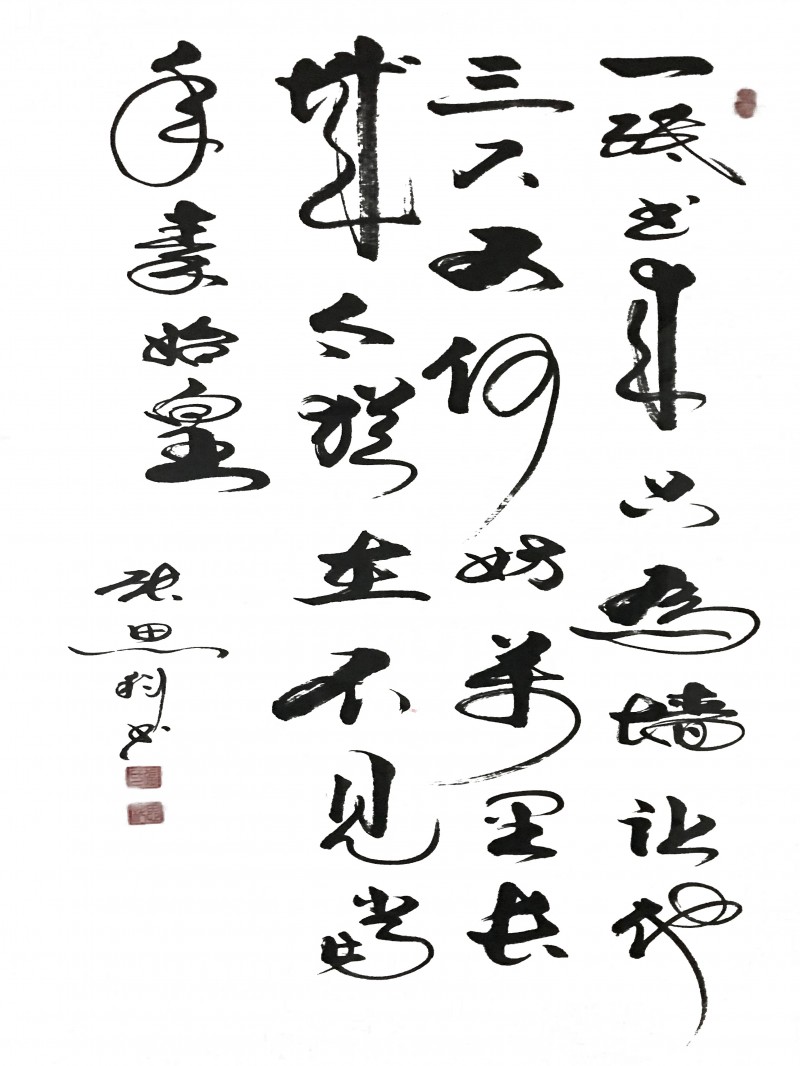 一纸书来只为墙让他
三尺又何妨万里长
城今犹在不见当
年秦始皇
张思
书